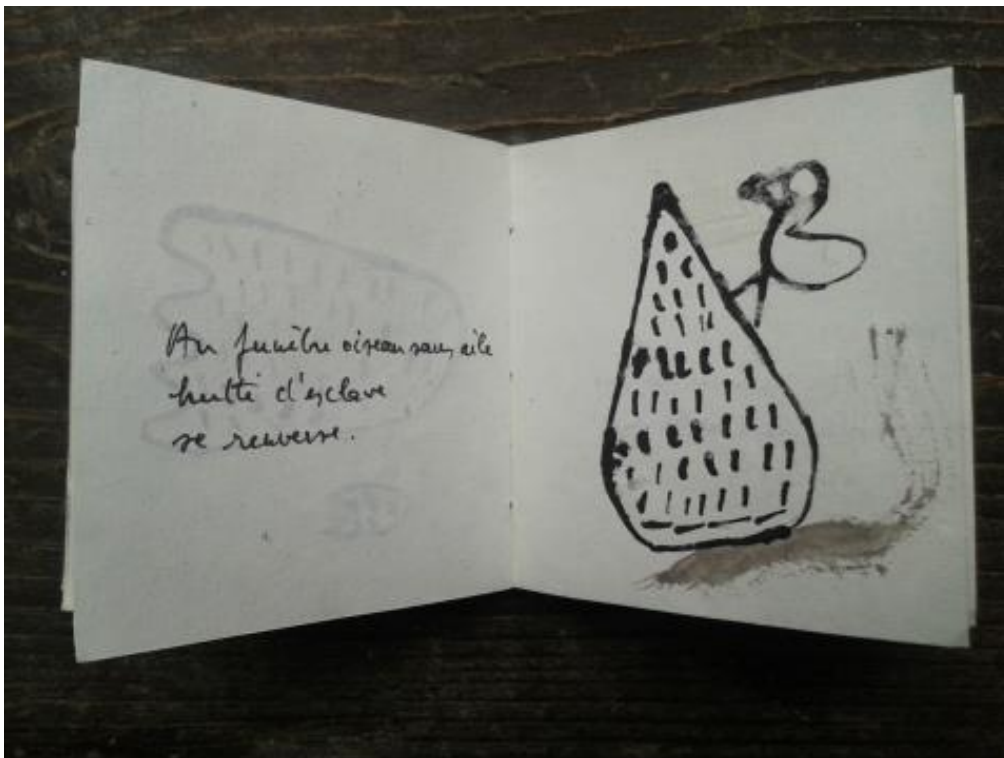 Au funèbre oiseau sans aile
hutte d'esclave
se renverse.